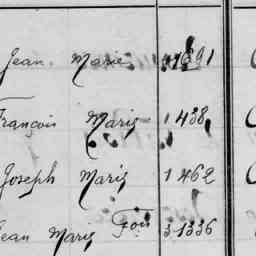 Jean Marie 1691
Francois Marie 1438
Joseph Marie 1462
Jean Marie Fois 31336